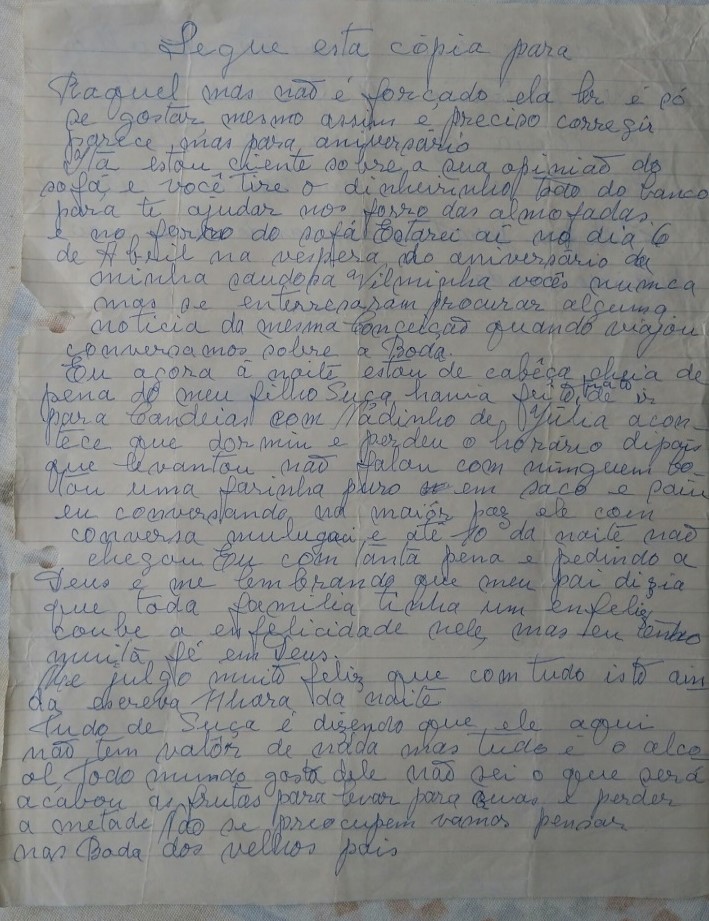 Segue esta cópia para
Raquel mas não é forçado ela ler é só
se gostar mesmo assim e preciso corregir
parece mas para aniversário
Já estou ciente sobre a sua opinião do
sofá e você tire o dinheirinho todo do banco
para te ajudar nos forro das almofadas
e no forro do sofá Estarei aí no dia 6
de Abril na vespera do aniversário da
minha saudosa Vilminha voces numca
mas se enterresaram procurar alguma
noticia da mesma Conceição quando viajou
conversamos sobre a Boda.
Eu agora à noite estou de cabêça cheia de
pena do meu filho Suça havia feito trato de ir
para Candeias com Nadinho de Yúlia acon-
tece que dormiu e perdeu o horário dipois
que levantou não falou com ninguem bo-
tou uma farinha puro em saco e saiu
eu conversando na maiór paz ele com
conversa e até 10 da noite não
chegou Eu com tanta pena e pedindo a
Deus e me lembrando que meu pai dizia
que toda familia tinha um enfeliz
coube a enfelicidade nele, mas eu tenho
muita fé em Deus.
Me julgo muito feliz que com tudo isto ain
da escreva 11 hora da noite
Tudo de Suça é dizendo que ele aqui
não tem valôr de nada mas tudo é o alco
ol, todo mundo gosta dele não sei o que será
acabou as frutas para levar para e perder
a metade Não se preocupem vamos pensar
nas Boda dos velhos pais